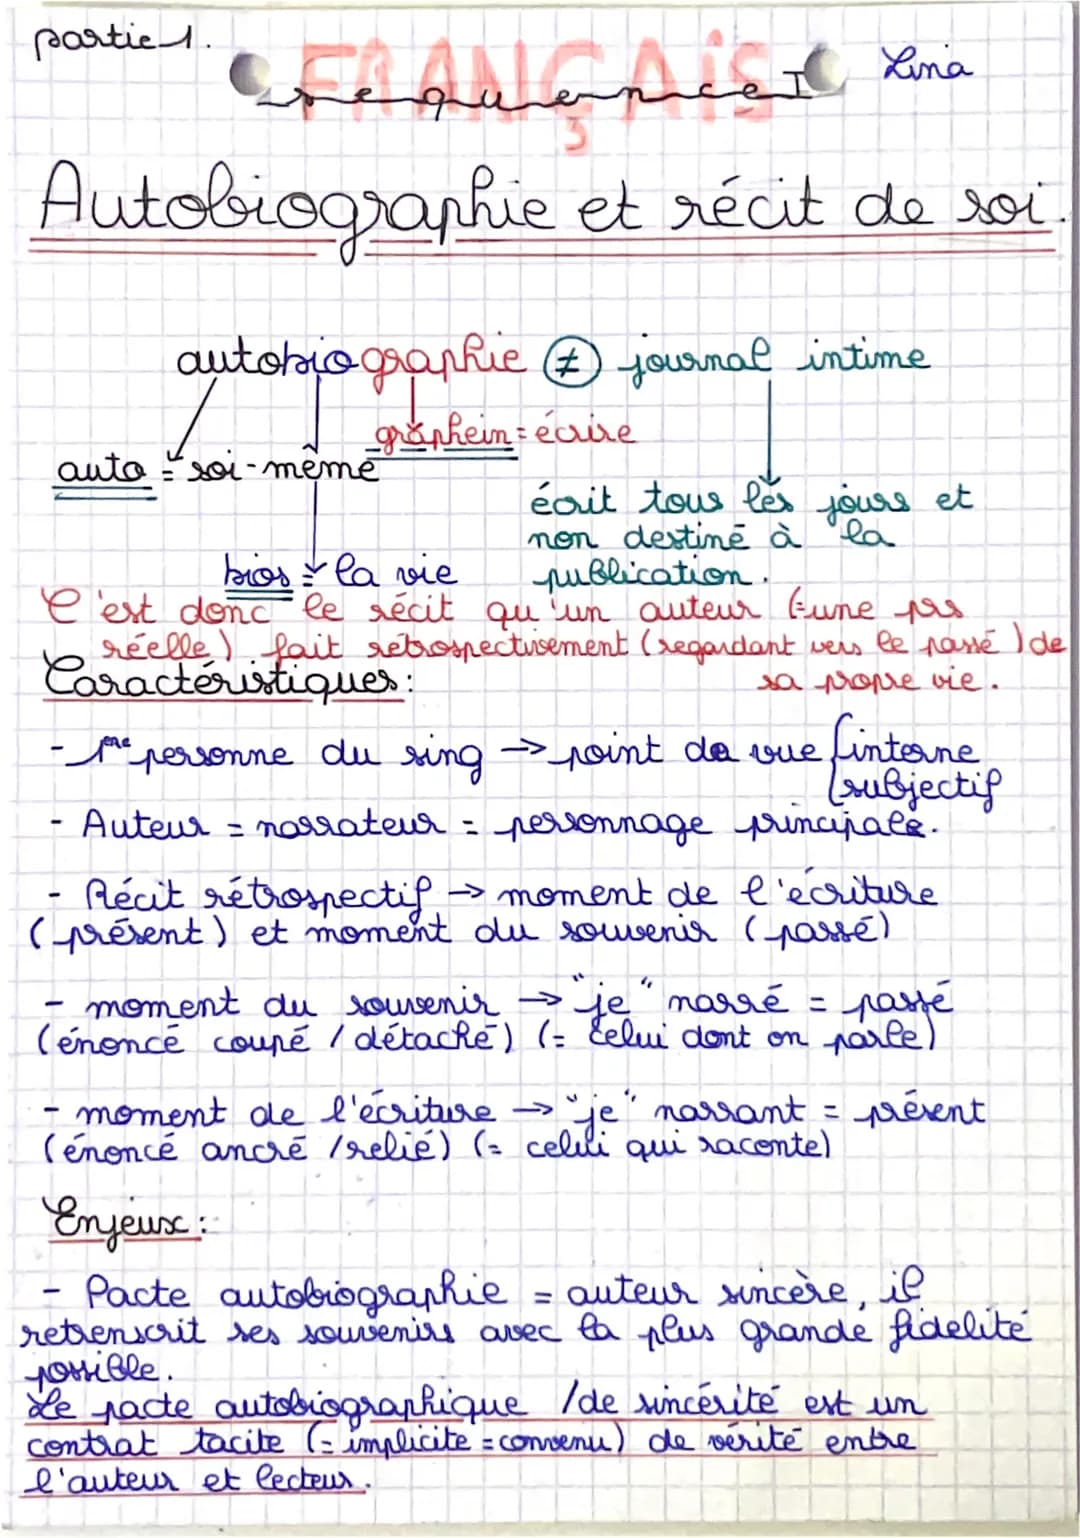 partie 1.
Lina
FRANÇAIS
séquence I
3
Autobiographie et récit de soi.
autobiographie ≠ journal intime
graphein = écrire
auto = soi-même
écrit tous les jours et
non destiné à la
publication.
bios = la vie
C'est donc le récit qu'un auteur (=une prs
réelle) fait rétrospectivement (regardant vers le passé) de
sa propre vie.
Caractéristiques:
- 1ère personne du sing → point de vue { interne
subjectif
- Auteur = narrateur = personnage principale.
- Récit rétrospectif → moment de l'écriture
(présent) et moment du souvenir (passé)
- moment du souvenir → "je" narré = passé
(énoncé coupé / détaché) (= celui dont on parle)
- moment de l'écriture → "je" narrant = présent
(énoncé ancré /relié) (= celui qui raconte)
Enjeux :
- Pacte autobiographie = auteur sincère, il
retrenscrit ses souvenirs avec la plus grande fidelité
possible.
Le pacte autobiographique /de sincérité est un
contrat tacite (= implicite = convenu) de vérité entre
l'auteur et lecteur.